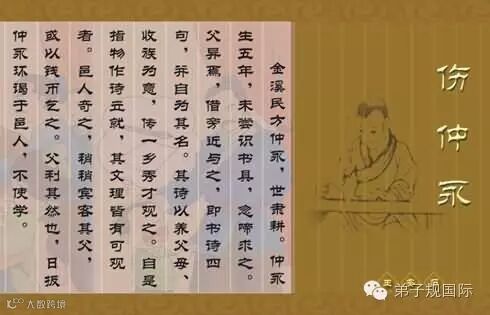 伤仲永
王安石
金溪民方仲永，世隶耕。仲永
生五年，未尝识书具，忽啼求之。
父异焉，借旁近与之，即书诗四
句，并自为其名。其诗以养父母、
收族为意，传一乡秀才观之。自是
指物作诗立就，其文理皆有可观
者。邑人奇之，稍稍宾客其父，
或以钱币乞之。父利其然也，日扳
仲永环谒于邑人，不使学。
弟子规国际
大数跨境